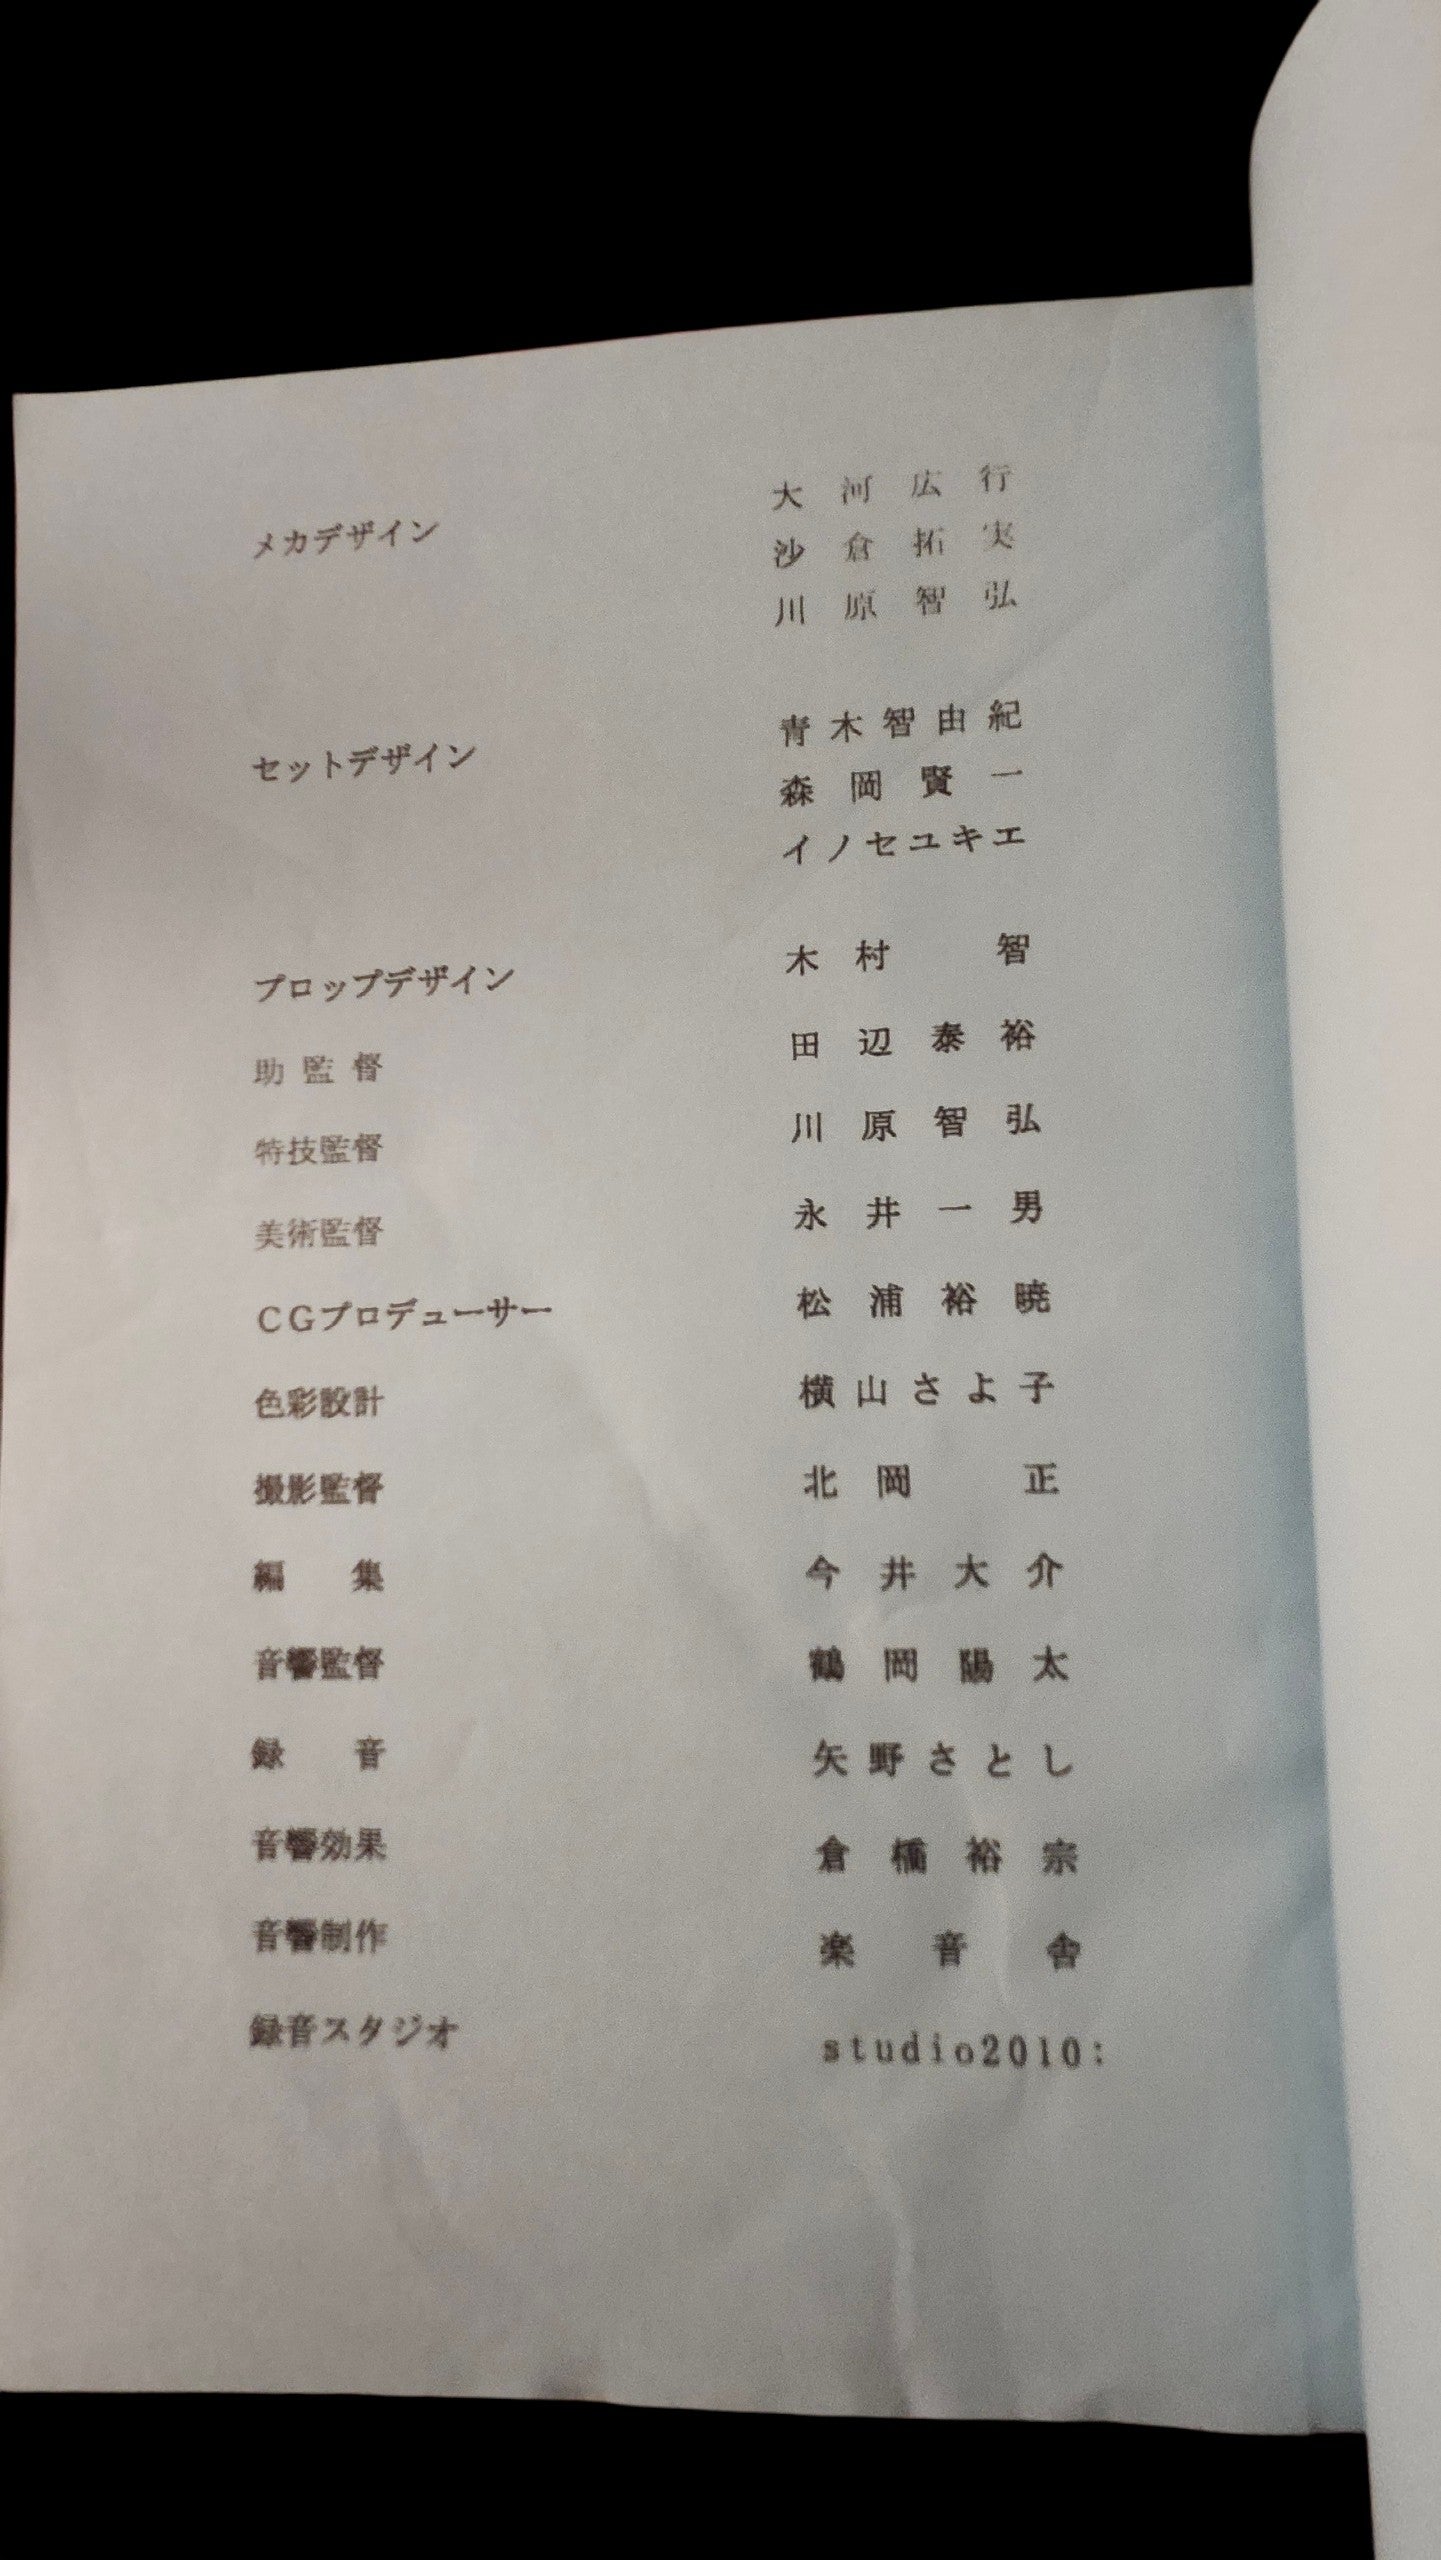 大河広行
メカデザイン 沙倉拓実
川原智弘
青木智由紀
セットデザイン 森岡賢一
イノセユキエ
プロップデザイン 木村 智
助監督 田辺泰裕
特技監督 川原智弘
美術監督 永井一男
CGプロデューサー 松浦裕暁
色彩設計 横山さよ子
撮影監督 北岡 正
編 集 今井大介
音響監督 鶴岡陽太
録 音 矢野さとし
音響効果 倉橋裕宗
音響制作 楽音舎
録音スタジオ studio2010: